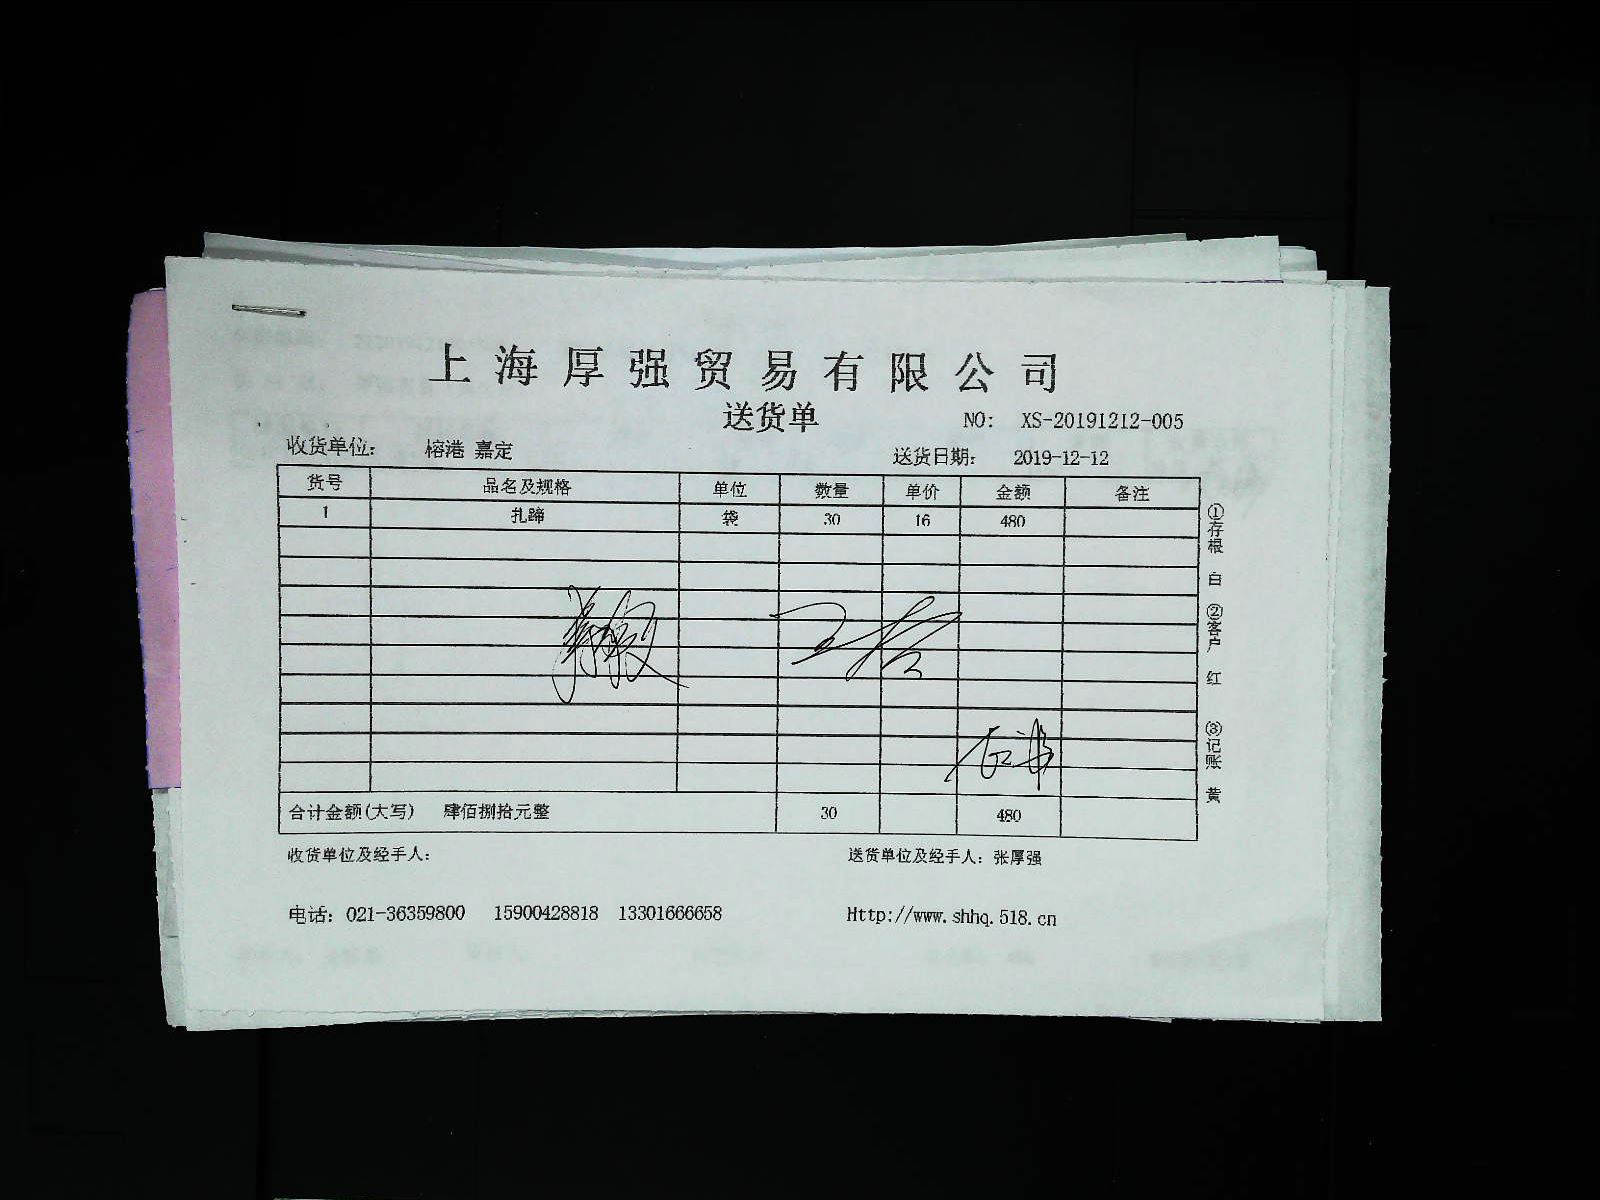 上海厚强贸易有限公司
送货单
NO: XS-20191212-005
收货单位: 榕港 嘉定
送货日期: 2019-12-12
货号 品名及规格 单位 数量 单价 金额 备注
1 扎蹄 袋 30 16 480
合计金额(大写) 肆佰捌拾元整 30 480
收货单位及经手人:
送货单位及经手人: 张厚强
电话: 021-36359800 15900428818 13301666658
Http://www.shhq.518.cn
①存根 白 ②客户 红 ③记账 黄